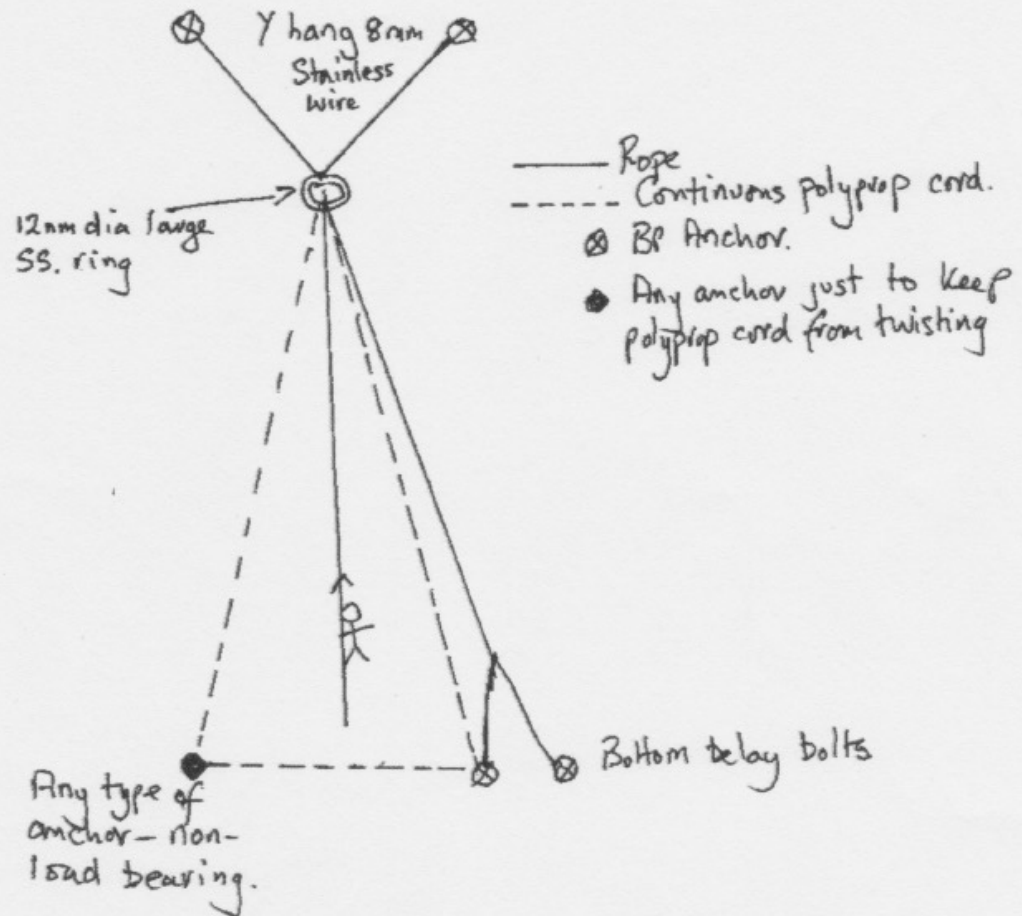 Y hang 8mm
Stainless
wire
12mm dia large
SS. ring
Rope
Continuous polyprop cord.
BP Anchor.
Any anchor just to keep
polyprop cord from twisting
Bottom belay bolts
Any type of
anchor - non-
load bearing.